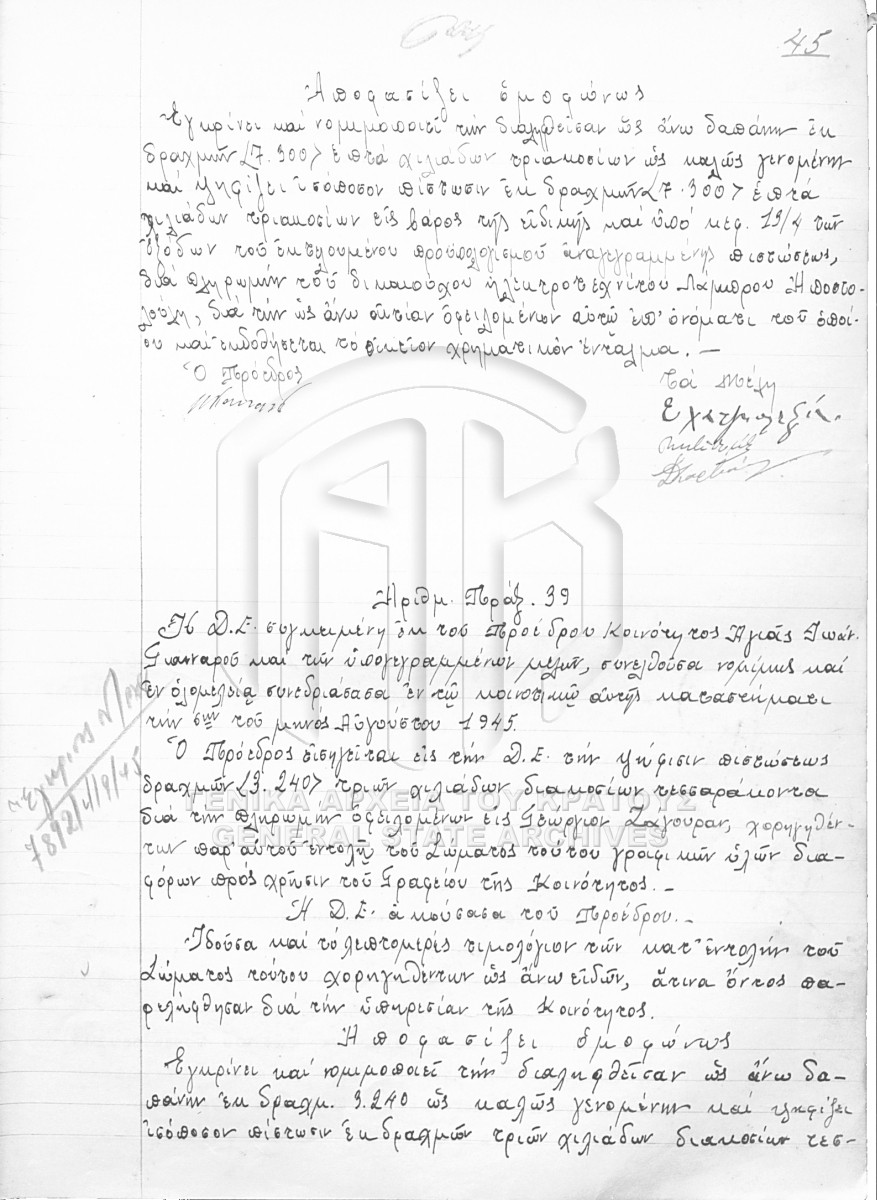 45
Ἀποφασίζει ὁμοφώνως
Ἐγκρίνει καί νομιμοποιεῖ τήν διαληφθεῖσαν ὡς ἄνω δαπάνην ἐκ
δραχμῶν (7.300) ἑπτά χιλιάδων τριακοσίων ὡς καλῶς γενομένην
καί ψηφίζει ἰσόποσον πίστωσιν ἐκ δραχμῶν (7.300) ἑπτά
χιλιάδων τριακοσίων εἰς βάρος τῆς εἰδικῆς καί ὑπό κεφ. 19/4 τῶν
ἐξόδων τοῦ ἐκτελουμένου προϋπολογισμοῦ ἀναγεγραμμένης πιστώσεως,
διά πληρωμήν τοῦ δικαιούχου ἠλεκτροτεχνίτου Λάμπρου Ἀποστο-
λούλη, διά τήν ὡς ἄνω αἰτίαν ὀφειλομένων αὐτῷ ἐπ' ὀνόματι τοῦ ὁποί-
ου καί ἐκδοθήσεται τό οἰκεῖον χρηματικόν ἔνταλμα. —
Ὁ Πρόεδρος
τά Μέλη
Ἀριθμ. Πράξ. 39
Ἡ Δ.Ε. συγκειμένη ἐκ τοῦ Προέδρου Κοινότητος Ἁγιᾶς Ἰωάν.
Γιανναροῦ καί τῶν ὑπογεγραμμένων μελῶν, συνελθοῦσα νομίμως καί
ἐν ὁλομελείᾳ συνεδριάσασα ἐν τῷ κοινοτικῷ αὐτῆς καταστήματι
τήν 5ην τοῦ μηνός Αὐγούστου 1945.
Ὁ Πρόεδρος εἰσηγεῖται εἰς τήν Δ.Ε. τήν ψήφισιν πιστώσεως
δραχμῶν (3.240) τριῶν χιλιάδων διακοσίων τεσσαράκοντα
διά τήν πληρωμήν ὀφειλομένων εἰς Γεώργιον Ζαγουραν, χορηγηθέν-
των παρ' αὐτοῦ ἐντολῇ τοῦ Σώματος τούτου γραφικῶν ὑλῶν δια-
φόρων πρός χρῆσιν τοῦ Γραφείου τῆς Κοινότητος. —
Ἡ Δ.Ε. ἀκούσασα τοῦ Προέδρου. —
Ἰδοῦσα καί τό λεπτομερές τιμολόγιον τῶν κατ' ἐντολήν τοῦ
Σώματος τούτου χορηγηθέντων ὡς ἄνω εἰδῶν, ἅτινα ὄντος πα-
ρελήφθησαν διά τήν ὑπηρεσίαν τῆς Κοινότητος.
Ἀποφασίζει ὁμοφώνως
Ἐγκρίνει καί νομιμοποιεῖ τήν διαληφθεῖσαν ὡς ἄνω δα-
πάνην ἐκ δραχμ. 3.240 ὡς καλῶς γενομένην καί ψηφίζει
ἰσόποσον πίστωσιν ἐκ δραχμῶν τριῶν χιλιάδων διακοσίων τεσ-
ΓΕΝΙΚΑ ΑΡΧΕΙΑ ΤΟΥ ΚΡΑΤΟΥΣ
GENERAL STATE ARCHIVES